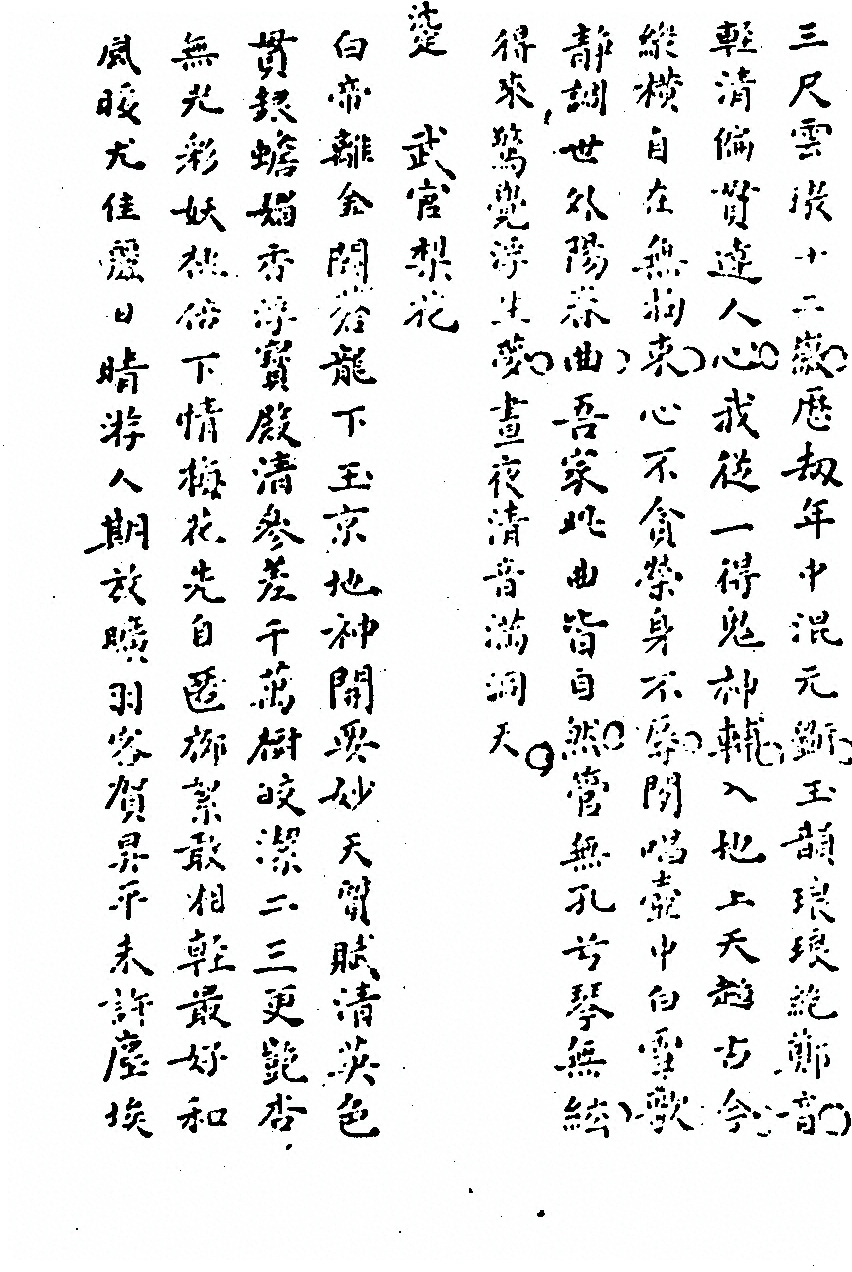 三尺雲璈十二徽歷劫年中混元斲玉韻琅琅絶鄭音
輕清徧貫達人心我從一得鬼神輔入地上天超古今
縱橫自在無拘束心不貪榮身不辱閑唱壺中白雪歌
靜調世外陽春曲吾家此曲皆自然管無孔兮琴無絃
得來驚覺浮生夢晝夜清音滿洞天
武官梨花
白帝離金闕蒼龍下玉京地神開要妙天質賦清英色
貫銀蟾媚香浮寶殿清參差千萬樹皎潔二三更艷杏
無光彩妖桃倍下情梅花先自匿柳絮敢相輕最好和
風暖尤佳麗日晴游人期放曠羽客賀昇平未許塵埃